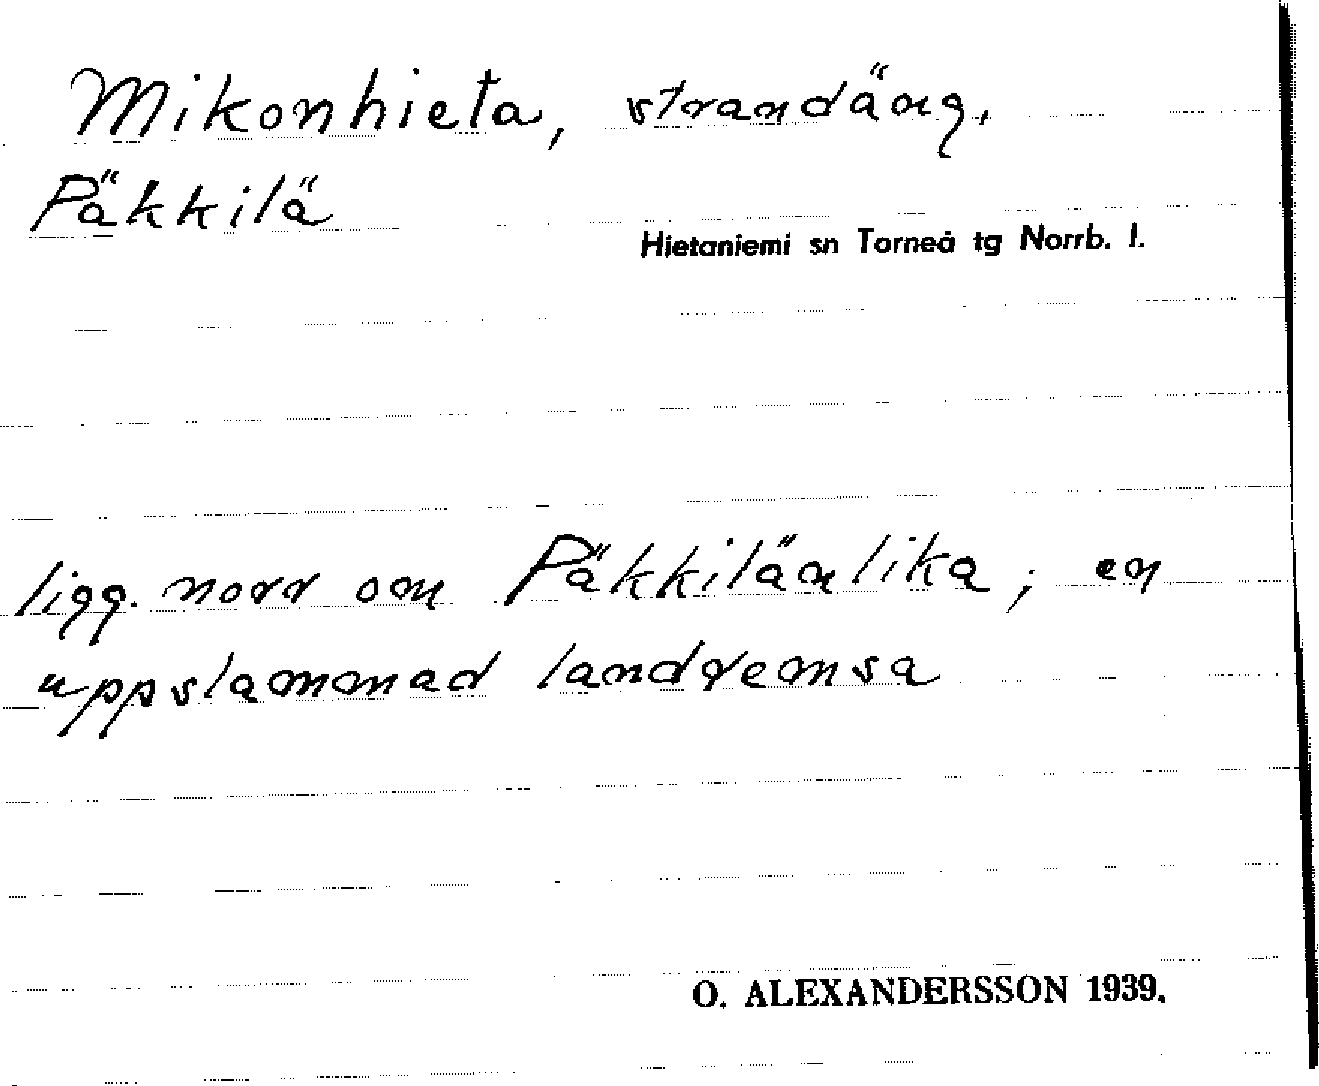 Mikonhieta, strandäng.
Päkkilä
Hietaniemi sn Torneå tg Norrb. l.
ligg. norr om Päkkilänlika; en
uppslammad landremsa
O. ALEXANDERSSON 1939.